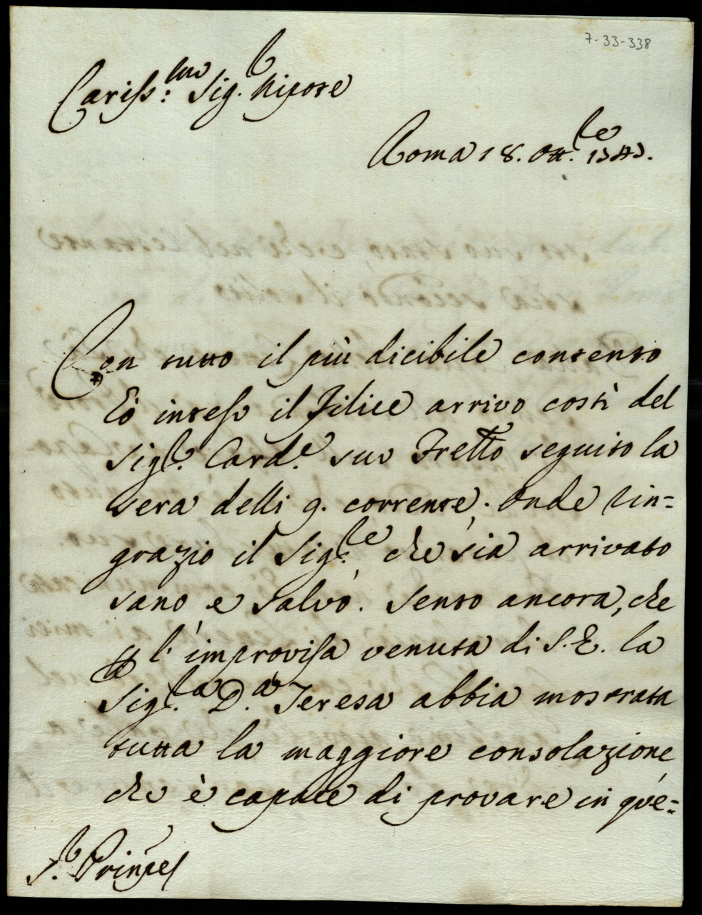 7-33-338
Cariss:mo Sig.r Nipote
Roma 18. Ott.bre 1743.
Con tutto il più dicibile contento
hò inteso il Filice arrivo costì del
Sig.r Card.e suo Fretto seguito la
sera delli 9. corrente. Onde rin=
grazio il Sig.re che sia arrivato
sano e salvo. Sento ancora, che
p l'improvisa venuta di S.E. la
Sig.ra D.a Teresa abbia mostrata
tutta la maggiore consolazione
che è capace di provare in que=